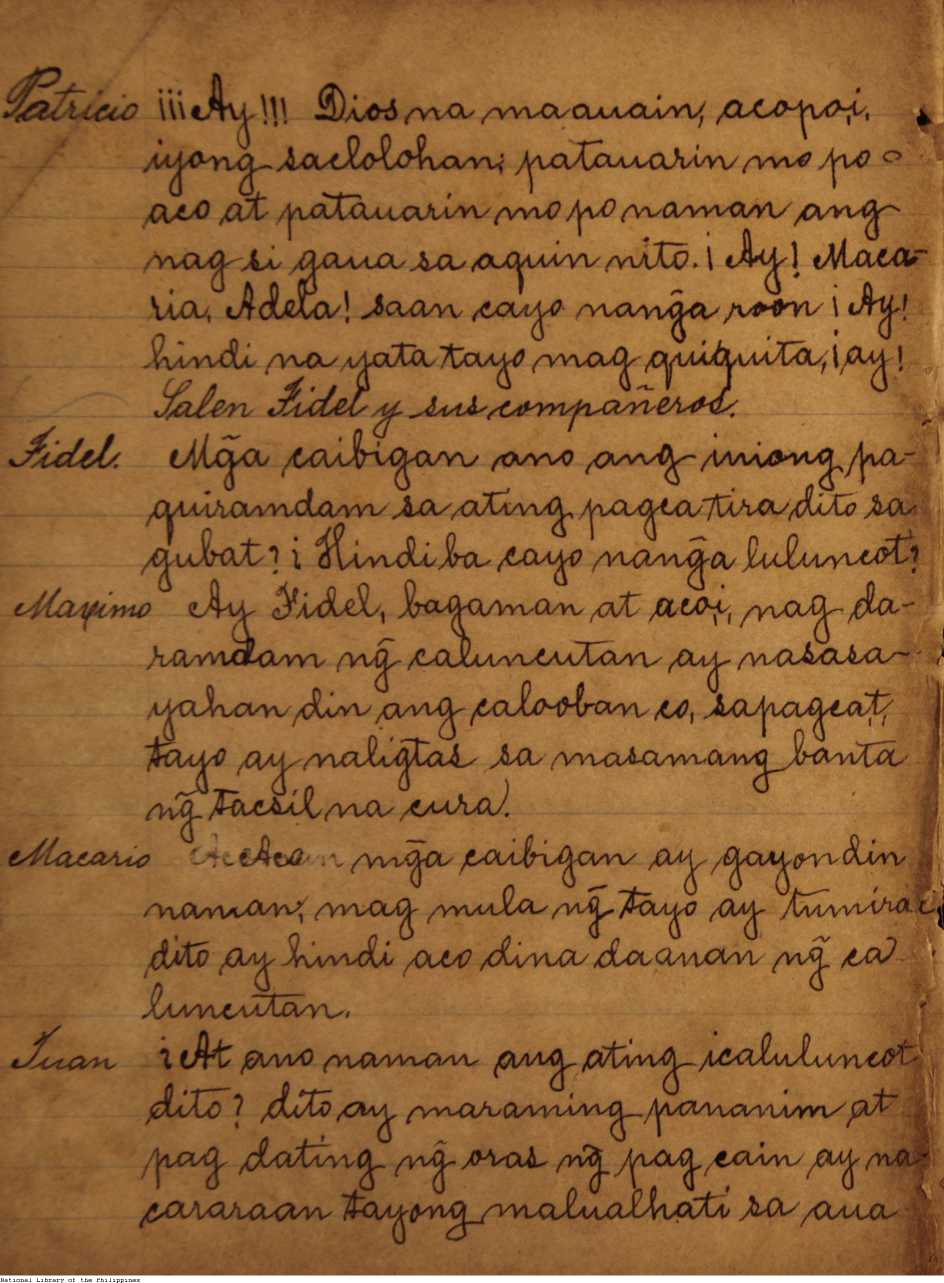 Patricio ¡¡¡Ay!!! Dios na maauain, acopoi,
iyong saclolohan; patauarin mo po
aco at patauarin mo po naman ang
nag si gaua sa aquin nito. ¡Ay! Maca-
ria, Adela! saan cayo nang̃a roon ¡Ay!
hindi na yata tayo mag quiquita, ¡ay!
Salen Fidel y sus compañeros.
Fidel. Mg̃a caibigan ano ang iniong pa-
quiramdam sa ating pagca tira dito sa
gubat? ¡Hindi ba cayo nang̃a luluncot?
Maximo Ay Fidel, bagaman at acoi, nag da-
ramdam ng̃ caluncutan ay nasasa-
yahan din ang calooban co, sapagcat,
tayo ay naligtas sa masamang banta
ng̃ tacsil na cura.
Macario Aco mg̃a caibigan ay gayon din
naman; mag mula ng̃ tayo ay tumira
dito ay hindi aco dina daanan ng̃ ca
luncutan.
Juan ¿At ano naman ang ating icaluluncot
dito? dito ay maraming pananim at
pag dating ng̃ oras ng̃ pag cain ay na-
cararaan tayong malualhati sa aua
National Library of the Philippines